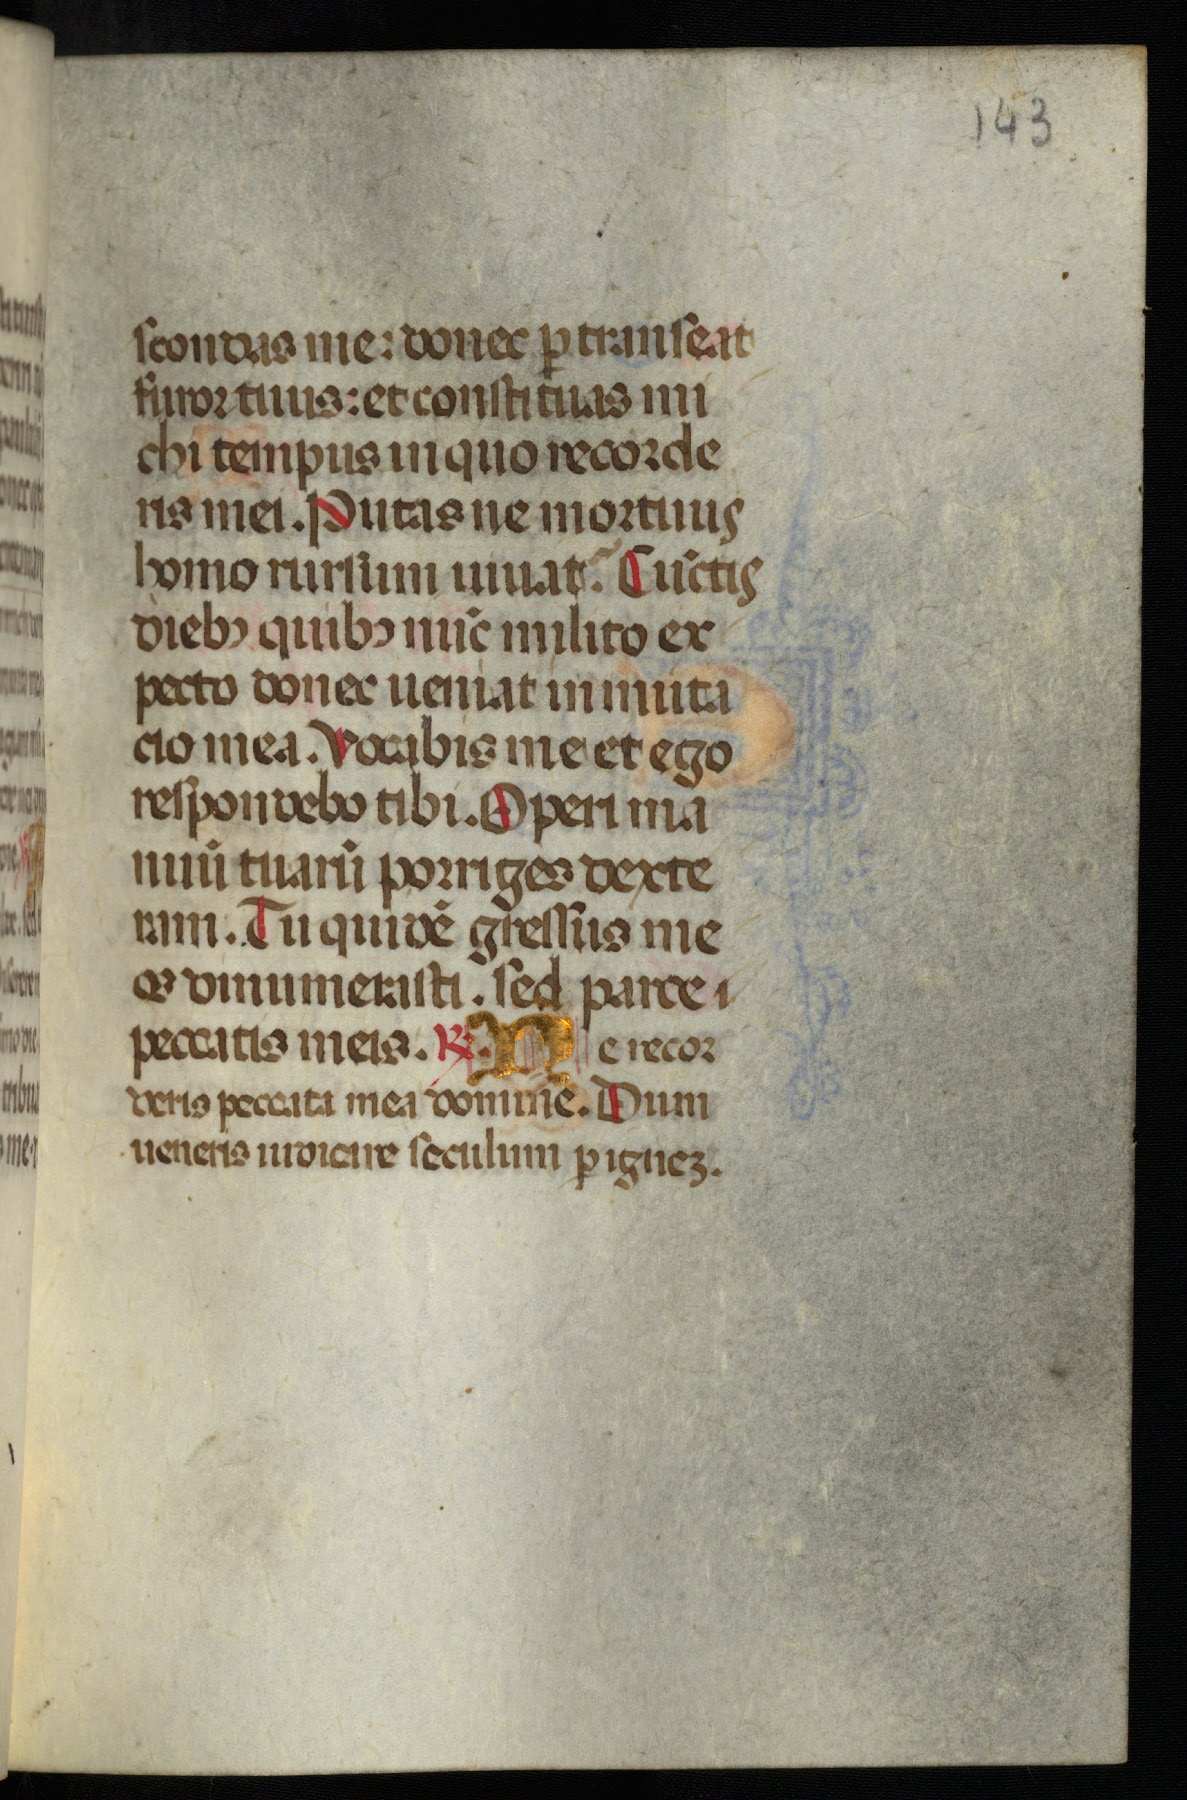 143
scondas me: donec ꝑ transeat
furor tuus: et constituas mi
chi tempus in quo recorde
ris mei. Putas ne mortuus
homo rursum uiuat? Cūctis
diebꝫ quibꝫ nūc milito ex
pecto donec ueniat inmuta
cio mea. Vocabis me et ego
respondebo tibi. Operi ma
nuū tuarū porriges dexte
ram. Tu quidē gressus me
os dinumerasti. sed parce
peccatis meis. ℟. Ne recor
deris peccata mea domine. Dum
ueneris iudicare seculum ꝑ ignez.